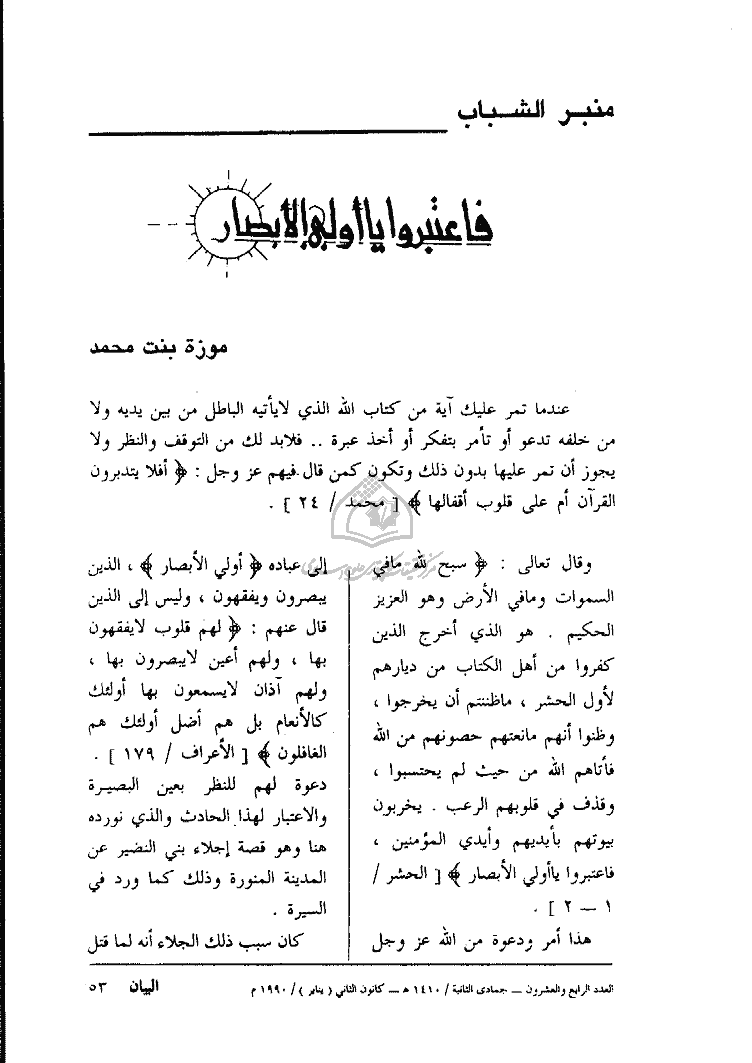 منبر الشباب
فاعتبروا يا أولي الأبصار
موزة بنت محمد
عندما تمر عليك آية من كتاب الله الذي لايأتيه الباطل من بين يديه ولا
من خلفه تدعو أو تأمر بتفكر أو أخذ عبرة .. فلابد لك من التوقف والنظر ولا
يجوز أن تمر عليها بدون ذلك وتكون كمن قال فيهم عز وجل : ﴿ أفلا يتدبرون
القرآن أم على قلوب أقفالها ﴾ [ محمد / ٢٤ ] .
وقال تعالى : ﴿ سبح لله مافي
السموات ومافي الأرض وهو العزيز
الحكيم . هو الذي أخرج الذين
كفروا من أهل الكتاب من ديارهم
لأول الحشر ، ماظننتم أن يخرجوا ،
وظنوا أنهم مانعتهم حصونهم من الله
فأتاهم الله من حيث لم يحتسبوا ،
وقذف في قلوبهم الرعب . يخربون
بيوتهم بأيديهم وأيدي المؤمنين ،
فاعتبروا ياأولي الأبصار ﴾ [ الحشر /
١ – ٢ ] .
هذا أمر ودعوة من الله عز وجل
إلى عباده ﴿ أولي الأبصار ﴾ ، الذين
يبصرون ويفقهون ، وليس إلى الذين
قال عنهم : ﴿ لهم قلوب لايفقهون
بها ، ولهم أعين لايبصرون بها ،
ولهم آذان لايسمعون بها أولئك
كالأنعام بل هم أضل أولئك هم
الغافلون ﴾ [ الأعراف / ١٧٩ ] .
دعوة لهم للنظر بعين البصيرة
والاعتبار لهذا الحادث والذي نورده
هنا وهو قصة إجلاء بني النضير عن
المدينة المنورة وذلك كما ورد في
السيرة .
كان سبب ذلك الجلاء أنه لما قتل
العدد الرابع والعشرون – جمادى الثانية / ١٤١٠ هـ – كانون الثاني ( يناير ) / ١٩٩٠ م البيان ٥٣